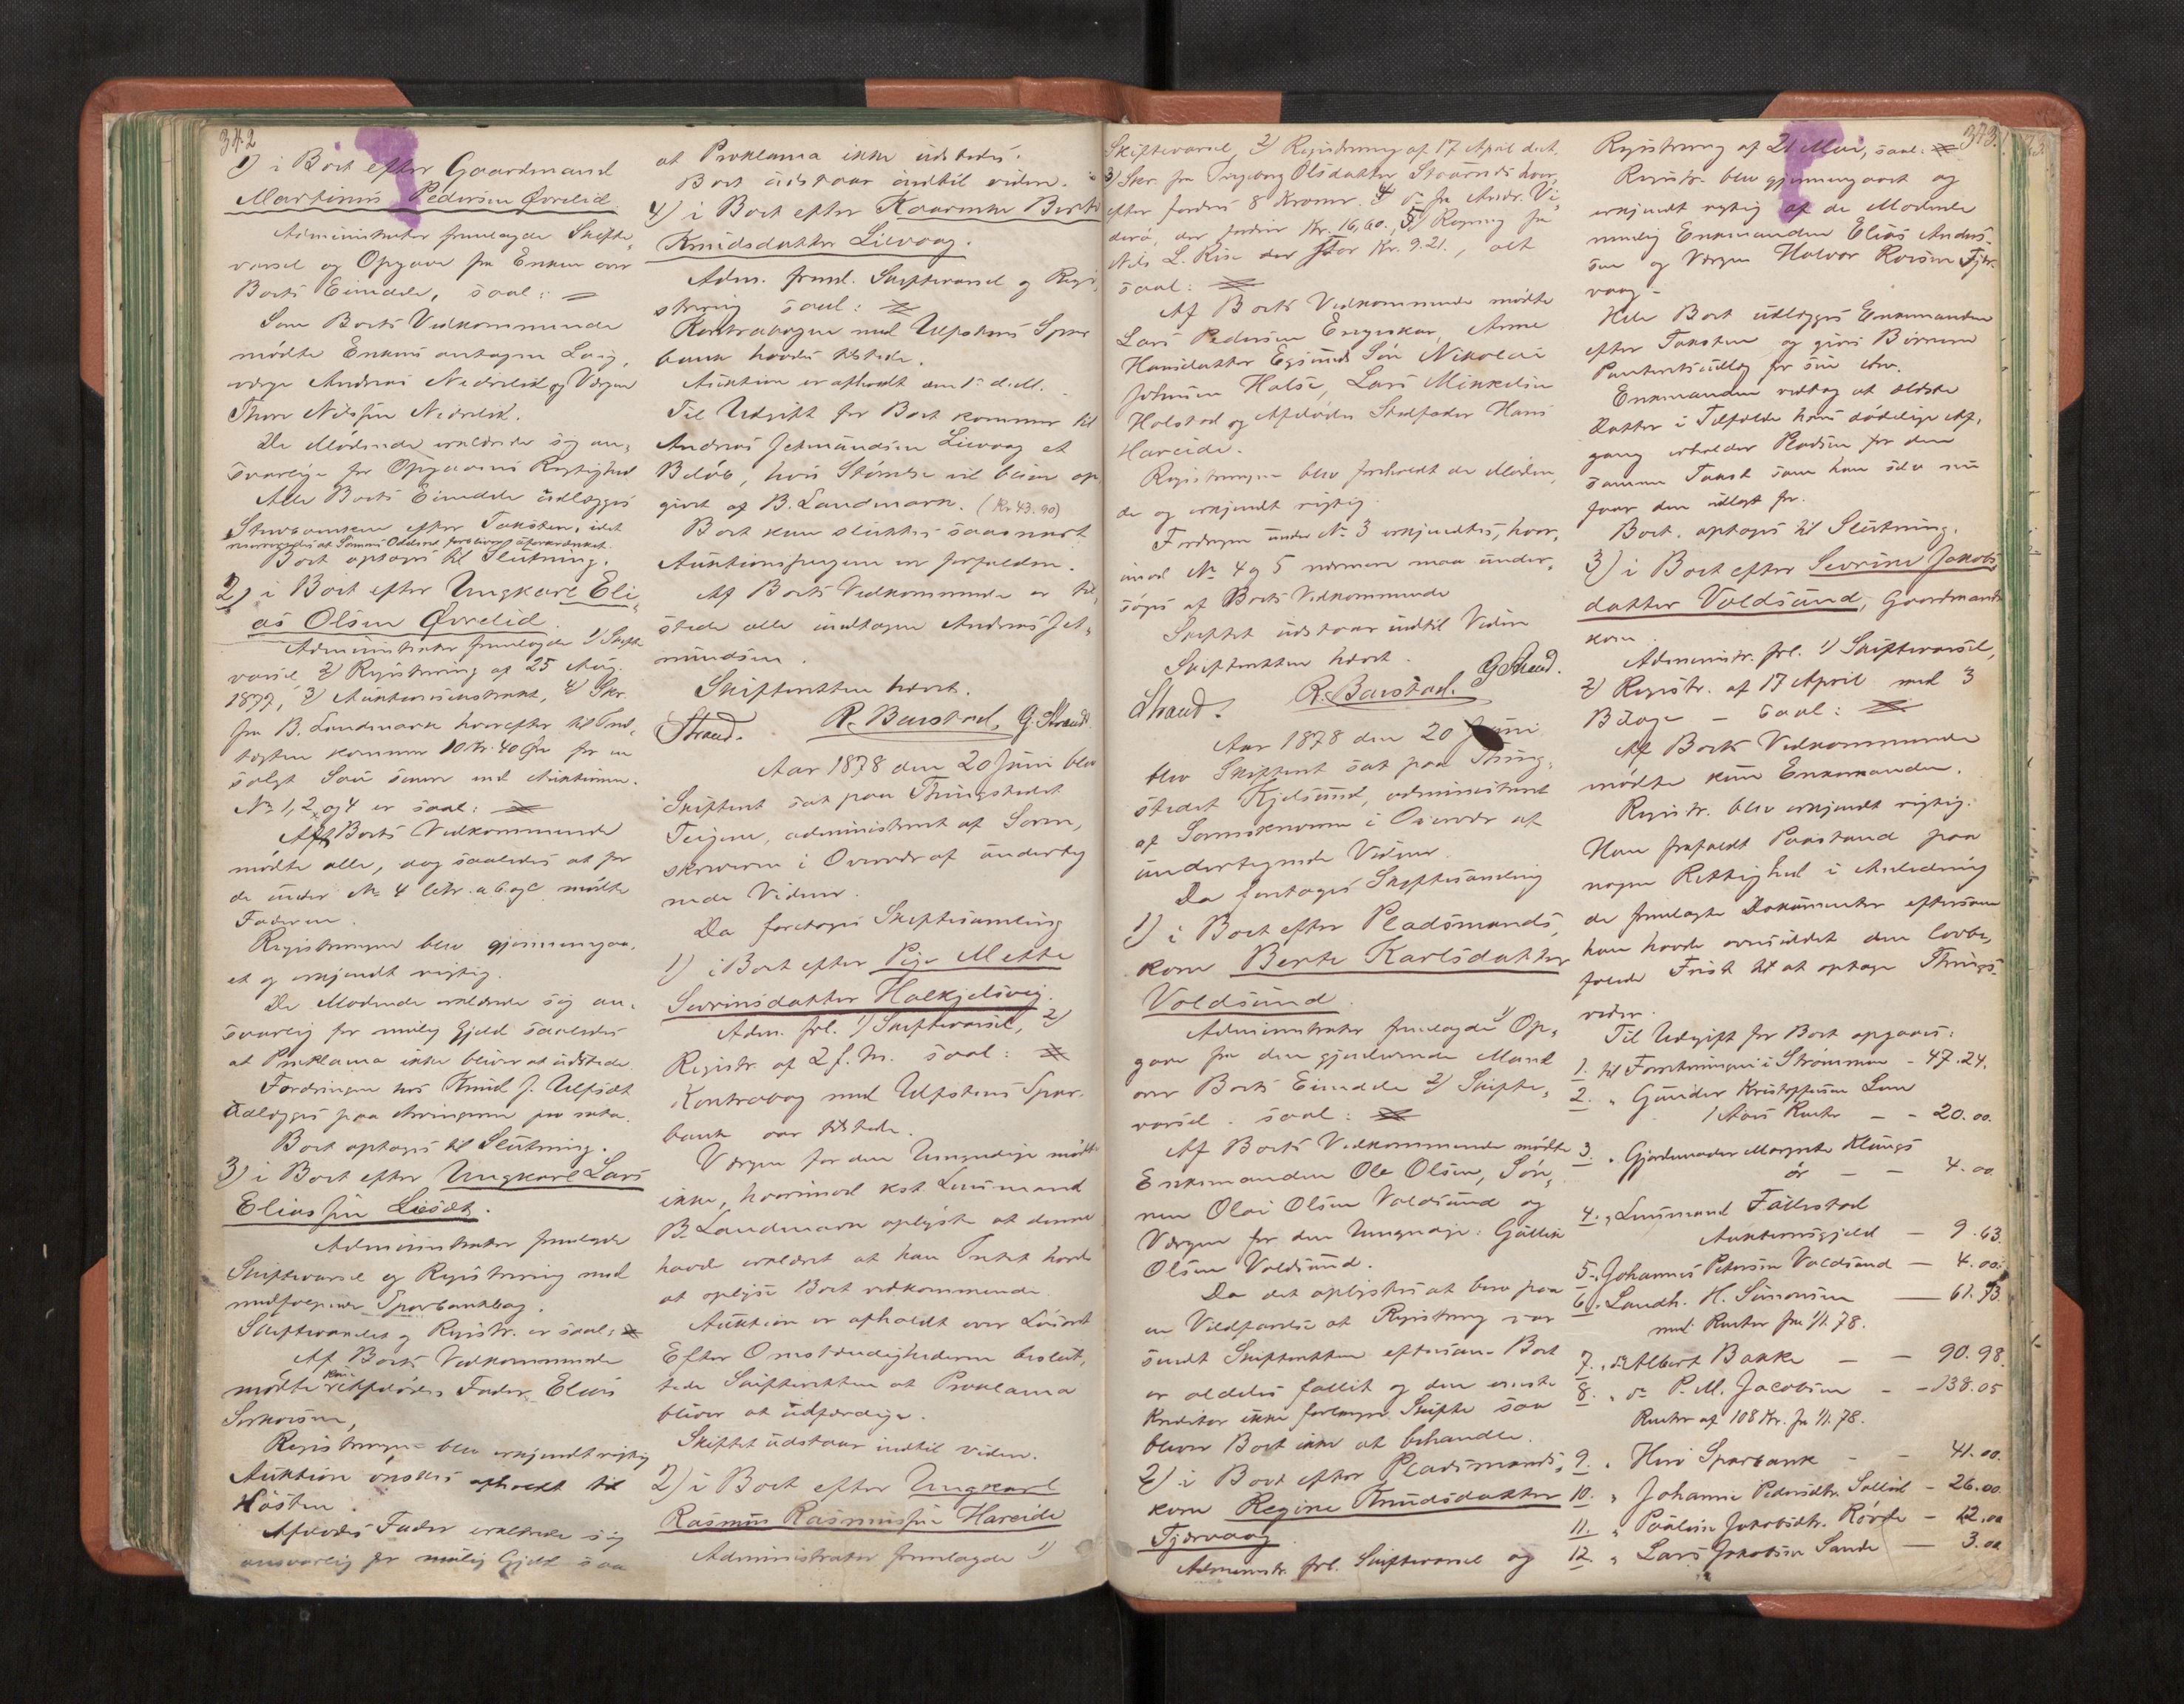 342
1) i Boet efter Gaardmand
Martinus Pedersen Øvrelid.
Administrator fremlagde Skifte-
varsel og Opgave fra Enken over
Boets Eiendele, saal:
Som Boets Vedkommende
mødte Enkens antagne Laug-
værge Andreas Nedrelid og Værgen
Thore Nilssen Nedrelid.
De Mødende erklærede sig an-
svarlige for Opgavens Rigtighed
Alle Boets Eiendele udlægges
Stervboenken efter Taksten, idet
Boet optages til Slutning.
2) i Boet efter Ungkarl Eli-
as Olsen Øvrelid.
Administrator fremlagde 1) Skifte-
varsel 2) Registrering af 25 Aug.
1877, 3) Auktionsextrakt, 4) Skr.
fra B. Landmark hvorefter til Ind-
tægten kommer 10 Kr. 40 Øre for en
solgt Sau senere end Auktionen.
No 1, 2 og 4 er saal:
Af Boets Vedkommende
mødte alle, dog saaledes at for
de under No 4 litr. a b og c mødte
Faderen.
Registreringen blev gjennemgaa-
et og erkjendt rigtig.
De Mødende erklærede sig an-
svarlig for mulig Gjeld saaledes
at Proklama ikke bliver at udstede.
Fordringen hos Knud J. Ulfstet
udlægges paa Arvingerne pro rata.
Boet optages til Slutning.
3) i Boet efter Ungkarl Lars
Eliassen
Administrator fremlagde
Skiftevarsel og Registrering med
medfølgende Sparbankbog.
Skiftevarselet og Registr. er saal:
Af Boets Vedkommende
mødte kun Afdødes Fader Elias
Registreringen blev erkjendt rigtig
Auktion ønskes afholdt til
Høsten.
Afdødes Fader erklærede sig
ansvarlig for mulig Gjeld saa
at Proklama ikke udstedes.
Boet udstaar indtil videre.
4) i Boet efter Kaarenke Berte
Knudsdatter Liavaag.
Adm. freml. Skiftevarsel og Regi-
strering saal:
Kontrabogen med Ulfstens Spar-
bank havdes tilstede.
Auktion er afholdt den 1ste d.M.
Til Udgift for Boet kommer til
Andreas Jetmundsen Liavaag et
Beløb, hvis Størrelse vil blive op-
givet af B. Landmark. (Kr 43.90)
Boet kan sluttes saasnart
Auktionspengene er forfaldne.
Af Boets Vedkommende er til-
stede alle undtagen Andreas Jet-
mundsen.
Skifteretten hævet.
Strand. R. Barstad. G. Strand
Aar 1878 den 20 Juni blev
Skifteret sat paa Thingstedet
Teigene, administreret af Soren-
skriveren i Overvær af underteg-
nede Vidner.
Da foretoges Skiftesamling
1) i Boet efter Pige Mette
Sevrinsdatter Halkjelsvig.
Adm. frl. 1) Skiftevarsel, 2)
Registr. af 2 f.M. saal:
Kontrabog med Ulfstens Spar-
bank var tilstede.
Værgen for den Umyndige mødte
ikke, hvorimod kst. Lensmand
B. Landmark oplyste at denne
havde erklæret at han Intet havde
at oplyse Boet vedkommende.
Auktion er afholdt over Løsøret
Efter Omstændighederne beslut-
tede Skifteretten at Proklama
bliver at udfærdige.
Skiftet udstaar indtil videre.
2) i Boet efter Ungkarl
Rasmus Rasmussen Hareide
Administrator fremlagde 1)
Skiftevarsel, 2) Registrering af 17 April d.A.
3) Skr. fra Ingeborg Olsdatter hvor-
efter fordres 8 Kroner. 4) do fra Andr. Vi-
derø, der fordrer Kr. 16,60., 5) Regning fra
Nils L. Rise der for Kr. 9.21., alt
saal:
Af Boets Vedkommende mødte
Lars Pedersen Engeskar, Anne
Hansdatter Egsunds Søn Nikolai
Johnsen Halse, Lars Mikkelsen
Holstad og Afdødes Stedfader Hans
Hareide.
Registreringen blev foreholdt de Møden-
de og erkjendt rigtig.
Fordringen under No 3 erkjendtes, hvor-
imod No 4 og 5 nærmere maa under-
søges af Boets Vedkommende
Skiftet udstaar indtil Videre
Skifteretten hævet.
Strand. R. Barstad. G Strand.
Aar 1878 den 20 Juni
blev Skifteret sat paa Thing-
stedet Kjelsund, administreret
af Sorenskriveren i Overvær af
undertegnede Vidner.
Da foretoges Skiftesamling
1) i Boet efter Pladsmands-
kone Berte Karlsdatter
Voldsund.
Administrator fremlagde 1) Op-
gave fra den gjenlevende Mand
over Boets Eiendele 2) Skifte-
varsel. saal:
Af Boets Vedkommende mødte
Enkemanden Ole Olsen, Søn-
nen Olai Olsen Voldsund og
Værgen for den Umyndige: Gullik
Olsen Voldsund.
Da det oplystes at bero paa
en Vildfarelse at Registrering var
sendt Skifteretten eftersom Boet
er aldeles fallit og den eneste
Kreditor ikke forlanger Skifte saa
bliver Boet ikke at behandle.
2) i Boet efter Pladsmands-
kone Regine Knudsdatter
Fjærvaag
Administr. frl. Skiftevarsel og
343.
Registrering af 21 Mai, saal:
Registr. blev gjennemgaaet og
erkjendt rigtig af de Mødende
nemlig Enkemanden Elias Anders-
sen og Værgen Halvor Fjær-
vaag.
Hele Boet udlægges Enkemanden
efter Taksten og gives Børnene
Panteretsudlæg for sin Arv.
Enkemanden vedtog at ældste
Datter i Tilfælde hans dødelige Af-
gang erholder Pladsen for den
samme Takst som han selv nu
faar den udlagt for.
Boet optages til Slutning.
3) i Boet efter Sevrine Jakobs-
datter Voldsund, Gaardmands-
kone.
Administr. frl. 1) Skiftevarsel,
2) Registr. af 17 April med 3
Bilage – saal:
Af Boets Vedkommende
mødte kun Enkemanden.
Registr. blev erkjendt rigtig.
Han frafaldt Paastand paa
nogen Rettighed i Anledning
de fremlagte Dokumenter eftersom
han havde oversiddet den lovbe-
falede Frist til at optage Things-
vidne.
Til Udgift for Boet opgaves:
1. til Forretningen i Strømmen – 47.24.
2. " Gunder Kristoffersen Sun
1 Aars Renter – – 20.00.
3. " Gjordemoder Margrete Klungs-
ør – – 4.00
4. " Lensmand Fallestad
Auktionsgjeld – 9.63.
5. " Johannes Petersen Voldsund – 4.00.
6. " Landh. H. Simonsen – 61.93.
med Renter fra 1/1 78.
7. " do Albert Bakke – – 90.98.
8. " do P. M. Jacobsen – – 138.05
Renter af 108 Kr. fra 1/1. 78.
9. " Herø Sparbank – – 41.00.
10. " Johanne Pedersdtr. – 26.00.
11. " Pauline Jakobsdtr. Rørde – 12.00
12. " Lars Jakobsen Sande – 3.00